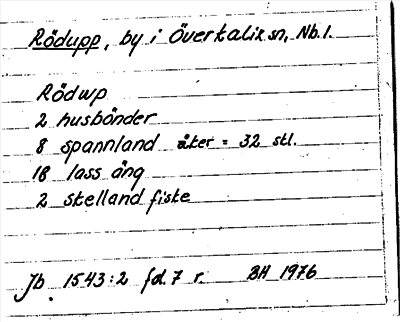 Rödupp, by i Överkalix sn, Nb.l.
Rödwp
2 husbönder
8 spannland åker = 32 stl.
18 lass äng
2 skelland fiske
Jb 1543:2 fol. 7 r. BH 1976